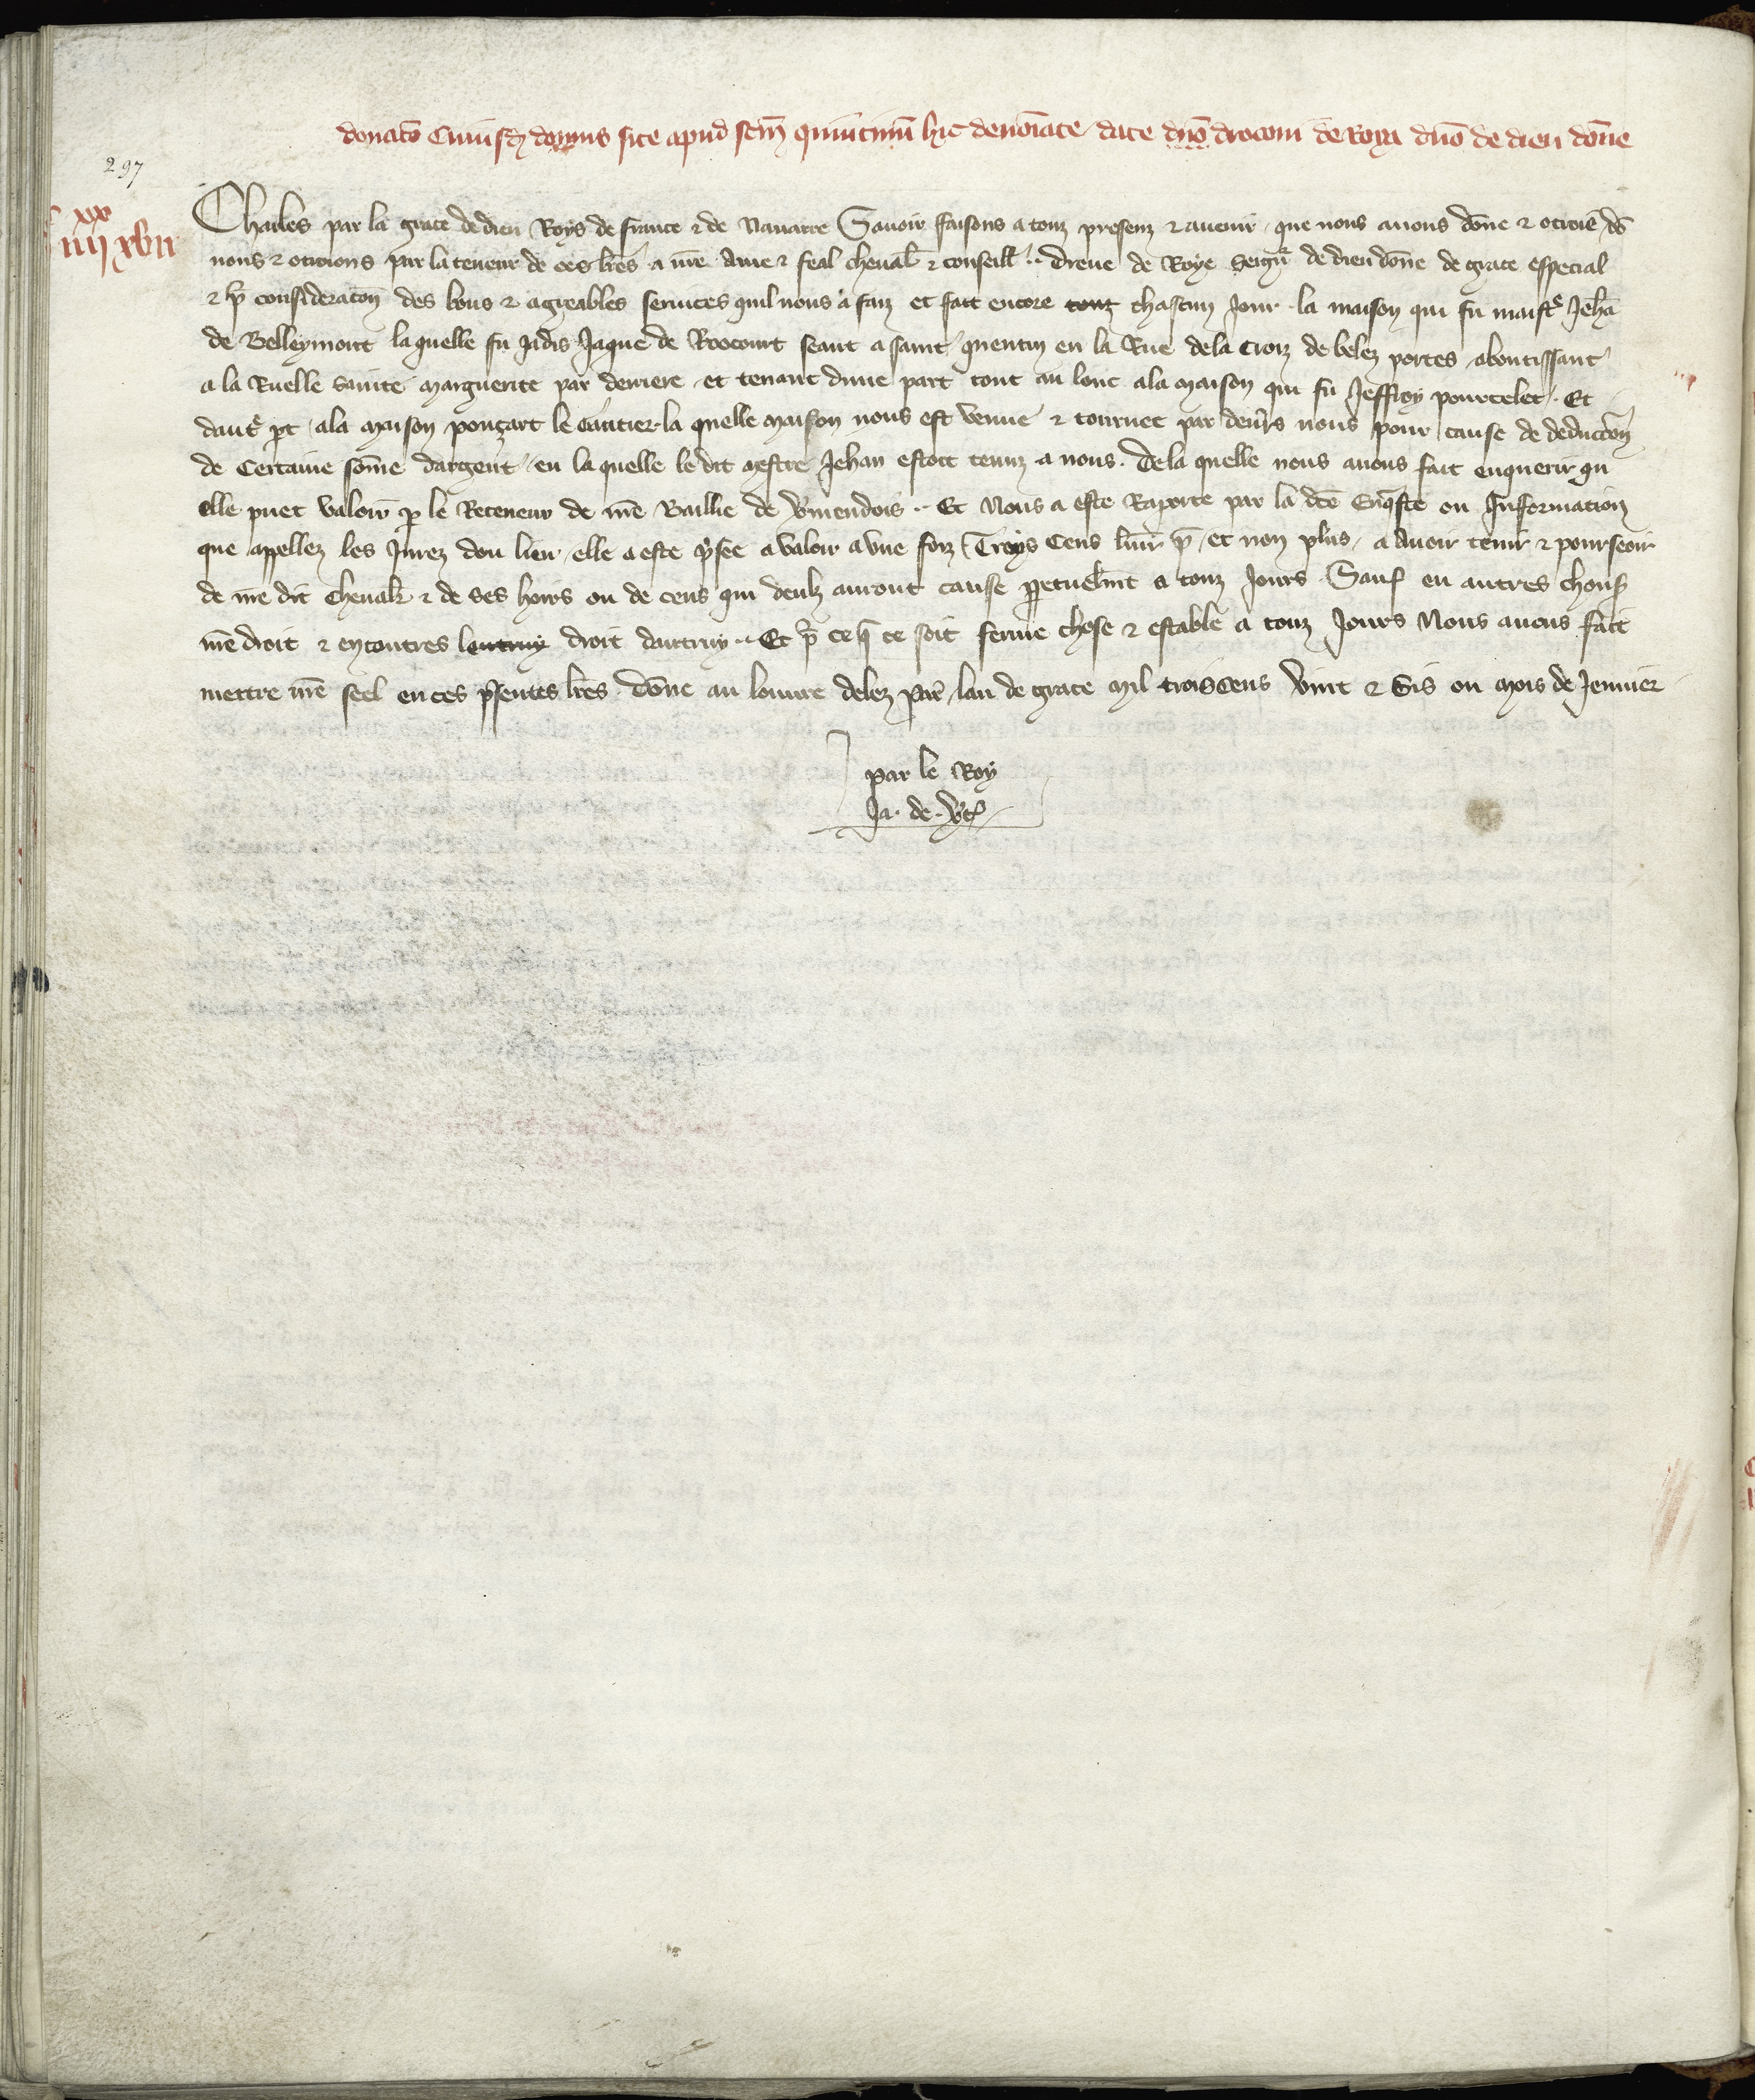 donatō Cuiusdā domus site apud sēm quintinū hic denoīate date dn̄o drocom̄ de Roya dn̄o de dieu dōne
297
Charles par la grace de dieu Roys de france ⁊ de Nauarre Sauoir faisons a touz presenz ⁊ auenir que nous auons dōne ⁊ otroie dō
nons ⁊ otroions par la teneur de ces lr̄es a nr̄e Ame ⁊ feal cheual̄ ⁊ conseill̄ dreue de Roye Seign̄r de dieu dōne de grace especial
⁊ p̄ consideratōn des bons ⁊ agreables seruices quil nous a faiz et fait encore touz chascun Jour la maison qui fu maist̄r Jehā
de Belleymont la quelle fu Jadis Jaque de Roocourt seant a saint quentin en la Rue dela Croiz de belez portes aboutissant
a la Ruelle sainte Marguerite par derriere et tenant dune part tout au lonc ala maison qui fu Jeffroy pourcelet Et
daut̄r pt ala maison ponçart le Cautier la quelle maison nous est venue ⁊ tournee par deūrs nous pour cause de deductōn
de Certaine sōme dargent en la quelle le dit mestre Jehan estoit tenuz a nous. De la quelle nous auons fait enquerir qu
elle puet valoir p le Receueur de nr̄e Baillie de v̄mendois Et Nous a este Raporte par la dc̄e Enq̄ste ou Information
que appellez les Jurez dou lieu elle a este p̄see a valoir a vne foiz Troys Cens liur̄ p̄ et non plus a Auoir tenir ⁊ pourseoir
de nr̄e dit Cheual̄r ⁊ de ses hoirs ou de ceus qui deulz auront cause ppetuelm̄t a touz Jours Sauf en autres chous
nr̄e droit ⁊ encontres lautruy droit dautruy Et p̄ ce q̄ ce soit ferme chose ⁊ estable a touz Jours Nous auons fait
mettre nr̄e seel en ces p̄sentes lr̄es dōne au louure delez par̄ lan de grace Mil trois cens vint ⁊ Sis ou mois de Jenuier
par le Roy
Ja. de v̄t